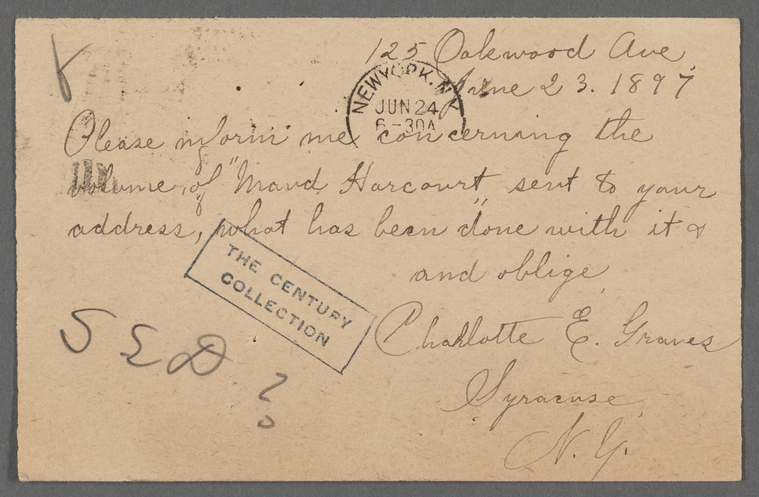 125 Oakwood Ave.
June 23. 1897
NEW YORK. N.Y.
JUN 24
6-30A
Please inform me concerning the
volume of "Maud Harcourt" sent to your
address, what has been done with it &
and oblige
THE CENTURY
COLLECTION
Charlotte E. Graves
Syracuse,
N.Y.
S E D ?